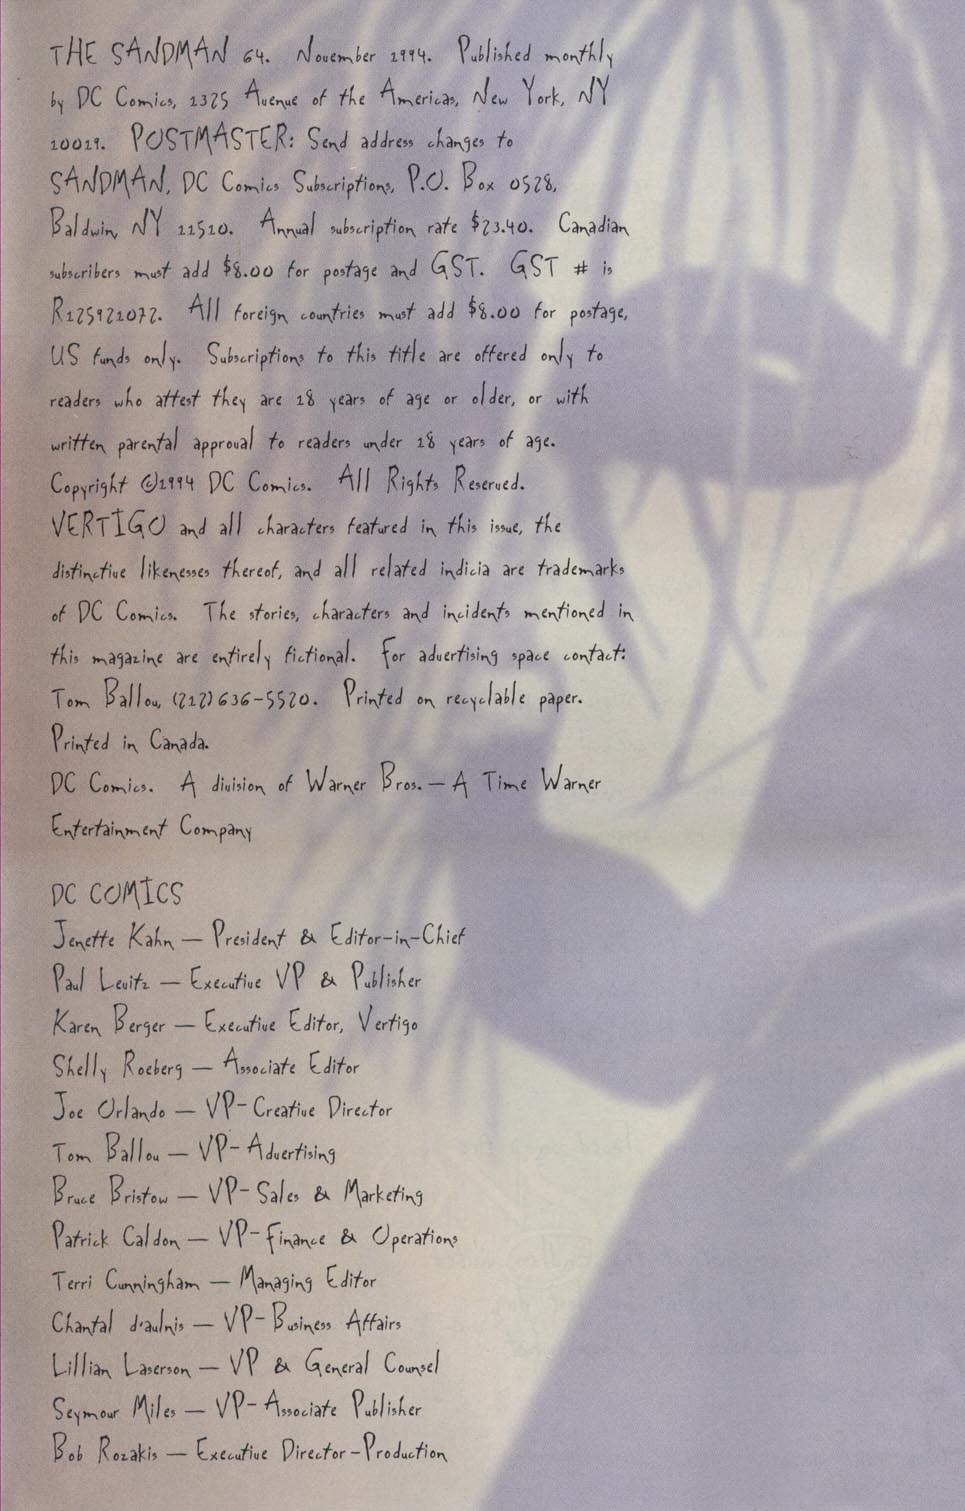 THE SANDMAN 64. November 1994. Published monthly
by DC Comics, 1325 Avenue of the Americas, New York, NY
10019. POSTMASTER: Send address changes to
SANDMAN, DC Comics Subscriptions, P.O. Box 0528,
Baldwin, NY 11510. Annual subscription rate $23.40. Canadian
subscribers must add $8.00 for postage and GST. GST # is
R125921072. All foreign countries must add $8.00 for postage,
US funds only. Subscriptions to this title are offered only to
readers who attest they are 18 years of age or older, or with
written parental approval to readers under 18 years of age.
Copyright ©1994 DC Comics. All Rights Reserved.
VERTIGO and all characters featured in this issue, the
distinctive likenesses thereof, and all related indicia are trademarks
of DC Comics. The stories, characters and incidents mentioned in
this magazine are entirely fictional. For advertising space contact:
Tom Ballou, (212) 636-5520. Printed on recyclable paper.
Printed in Canada.
DC Comics. A division of Warner Bros. — A Time Warner
Entertainment Company
DC COMICS
Jenette Kahn — President & Editor-in-Chief
Paul Levitz — Executive VP & Publisher
Karen Berger — Executive Editor, Vertigo
Shelly Roeberg — Associate Editor
Joe Orlando — VP-Creative Director
Tom Ballou — VP-Advertising
Bruce Bristow — VP-Sales & Marketing
Patrick Caldon — VP-Finance & Operations
Terri Cunningham — Managing Editor
Chantal d'aulnis — VP-Business Affairs
Lillian Laserson — VP & General Counsel
Seymour Miles — VP-Associate Publisher
Bob Rozakis — Executive Director-Production